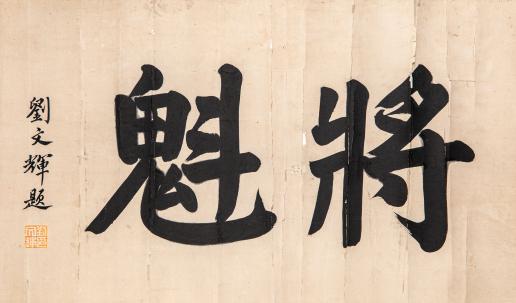 將魁
劉文輝題